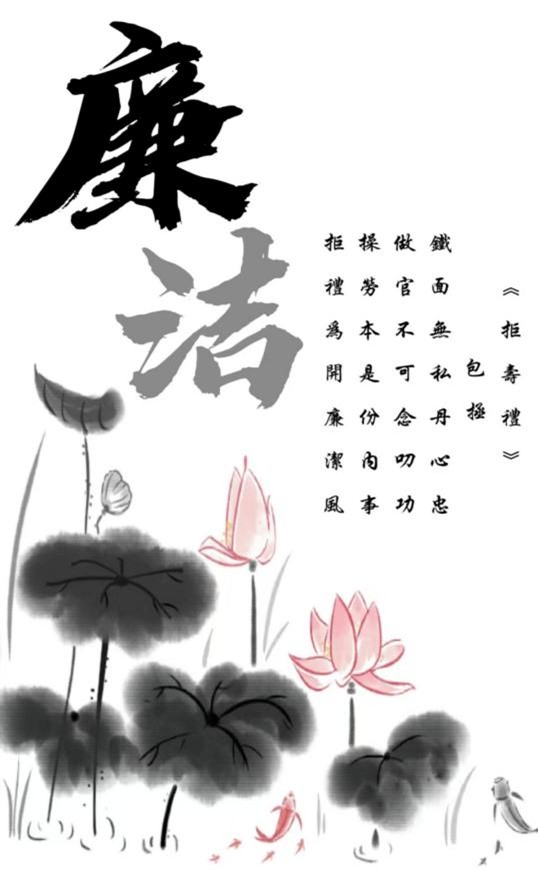 廉
洁
《拒壽禮》
包拯
鐵面無私丹心忠
做官不可念叨功
操勞本是份内事
拒禮為開廉潔風